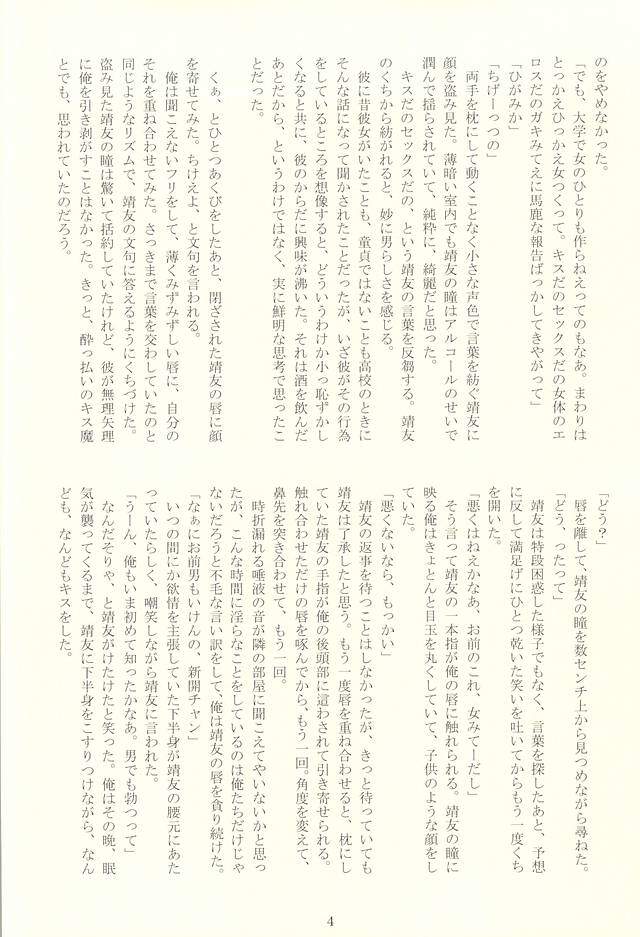 のをやめなかった。
「でも、大学で女のひとりも作らねえってのもなあ。まわりは
とっかえひっかえ女つくって。キスだのセックスだの女体のエ
ロスだのガキみてえに馬鹿な報告ばっかしてきやがって」
「ひがみか」
「ちげーっつの」
両手を枕にして動くことなく小さな声色で言葉を紡ぐ靖友に
顔を盗み見た。薄暗い室内でも靖友の瞳はアルコールのせいで
潤んで揺らされていて、純粋に、綺麗だと思った。
キスだのセックスだの、という靖友の言葉を反芻する。靖友
のくちから紡がれると、妙に男らしさを感じる。
彼に昔彼女がいたことも、童貞ではないことも高校のときに
そんな話になって聞かされたことだったが、いざ彼がその行為
をしているところを想像すると、どういうわけか小っ恥ずかし
くなると共に、彼のからだに興味が沸いた。それは酒を飲んだ
あとだから、というわけではなく、実に鮮明な思考で思ったこ
とだった。
くぁ、とひとつあくびをしたあと、閉ざされた靖友の唇に顔
を寄せてみた。ちけえよ、と文句を言われる。
俺は聞こえないフリをして、薄くみずみずしい唇に、自分の
それを重ね合わせてみた。さっきまで言葉を交わしていたのと
同じようなリズムで、靖友の文句に答えるようにくちづけた。
盗み見た靖友の瞳は驚いて括約していたけれど、彼が無理矢理
に俺を引き剥がすことはなかった。きっと、酔っ払いのキス魔
とでも、思われていたのだろう。
「どう？」
唇を離して、靖友の瞳を数センチ上から見つめながら尋ねた。
「どう、ったって」
靖友は特段困惑した様子でもなく、言葉を探したあと、予想
に反して満足げにひとつ乾いた笑いを吐いてからもう一度くち
を開いた。
「悪くはねえかなあ、お前のこれ、女みてーだし」
そう言って靖友の一本指が俺の唇に触れられる。靖友の瞳に
映る俺はきょとんと目玉を丸くしていて、子供のような顔をし
ていた。
「悪くないなら、もっかい」
靖友の返事を待つことはしなかったが、きっと待っていても
靖友は了承したと思う。もう一度唇を重ね合わせると、枕にし
ていた靖友の手指が俺の後頭部に這わされて引き寄せられる。
触れ合わせただけの唇を啄んでから、もう一回。角度を変えて、
鼻先を突き合わせて、もう一回。
時折漏れる唾液の音が隣の部屋に聞こえてやいないかと思っ
たが、こんな時間に淫らなことをしているのは俺たちだけじゃ
ないだろうと不毛な言い訳をして、俺は靖友の唇を貪り続けた。
「なぁにお前男もいけんの、新開チャン」
いつの間にか欲情を主張していた下半身が靖友の腰元にあた
っていたらしく、嘲笑しながら靖友に言われた。
「うーん、俺もいま初めて知ったかなあ。男でも勃つって」
なんだそりゃ、と靖友がけたけたと笑った。俺はその晩、眠
気が襲ってくるまで、靖友に下半身をこすりつけながら、なん
ども、なんどもキスをした。
4